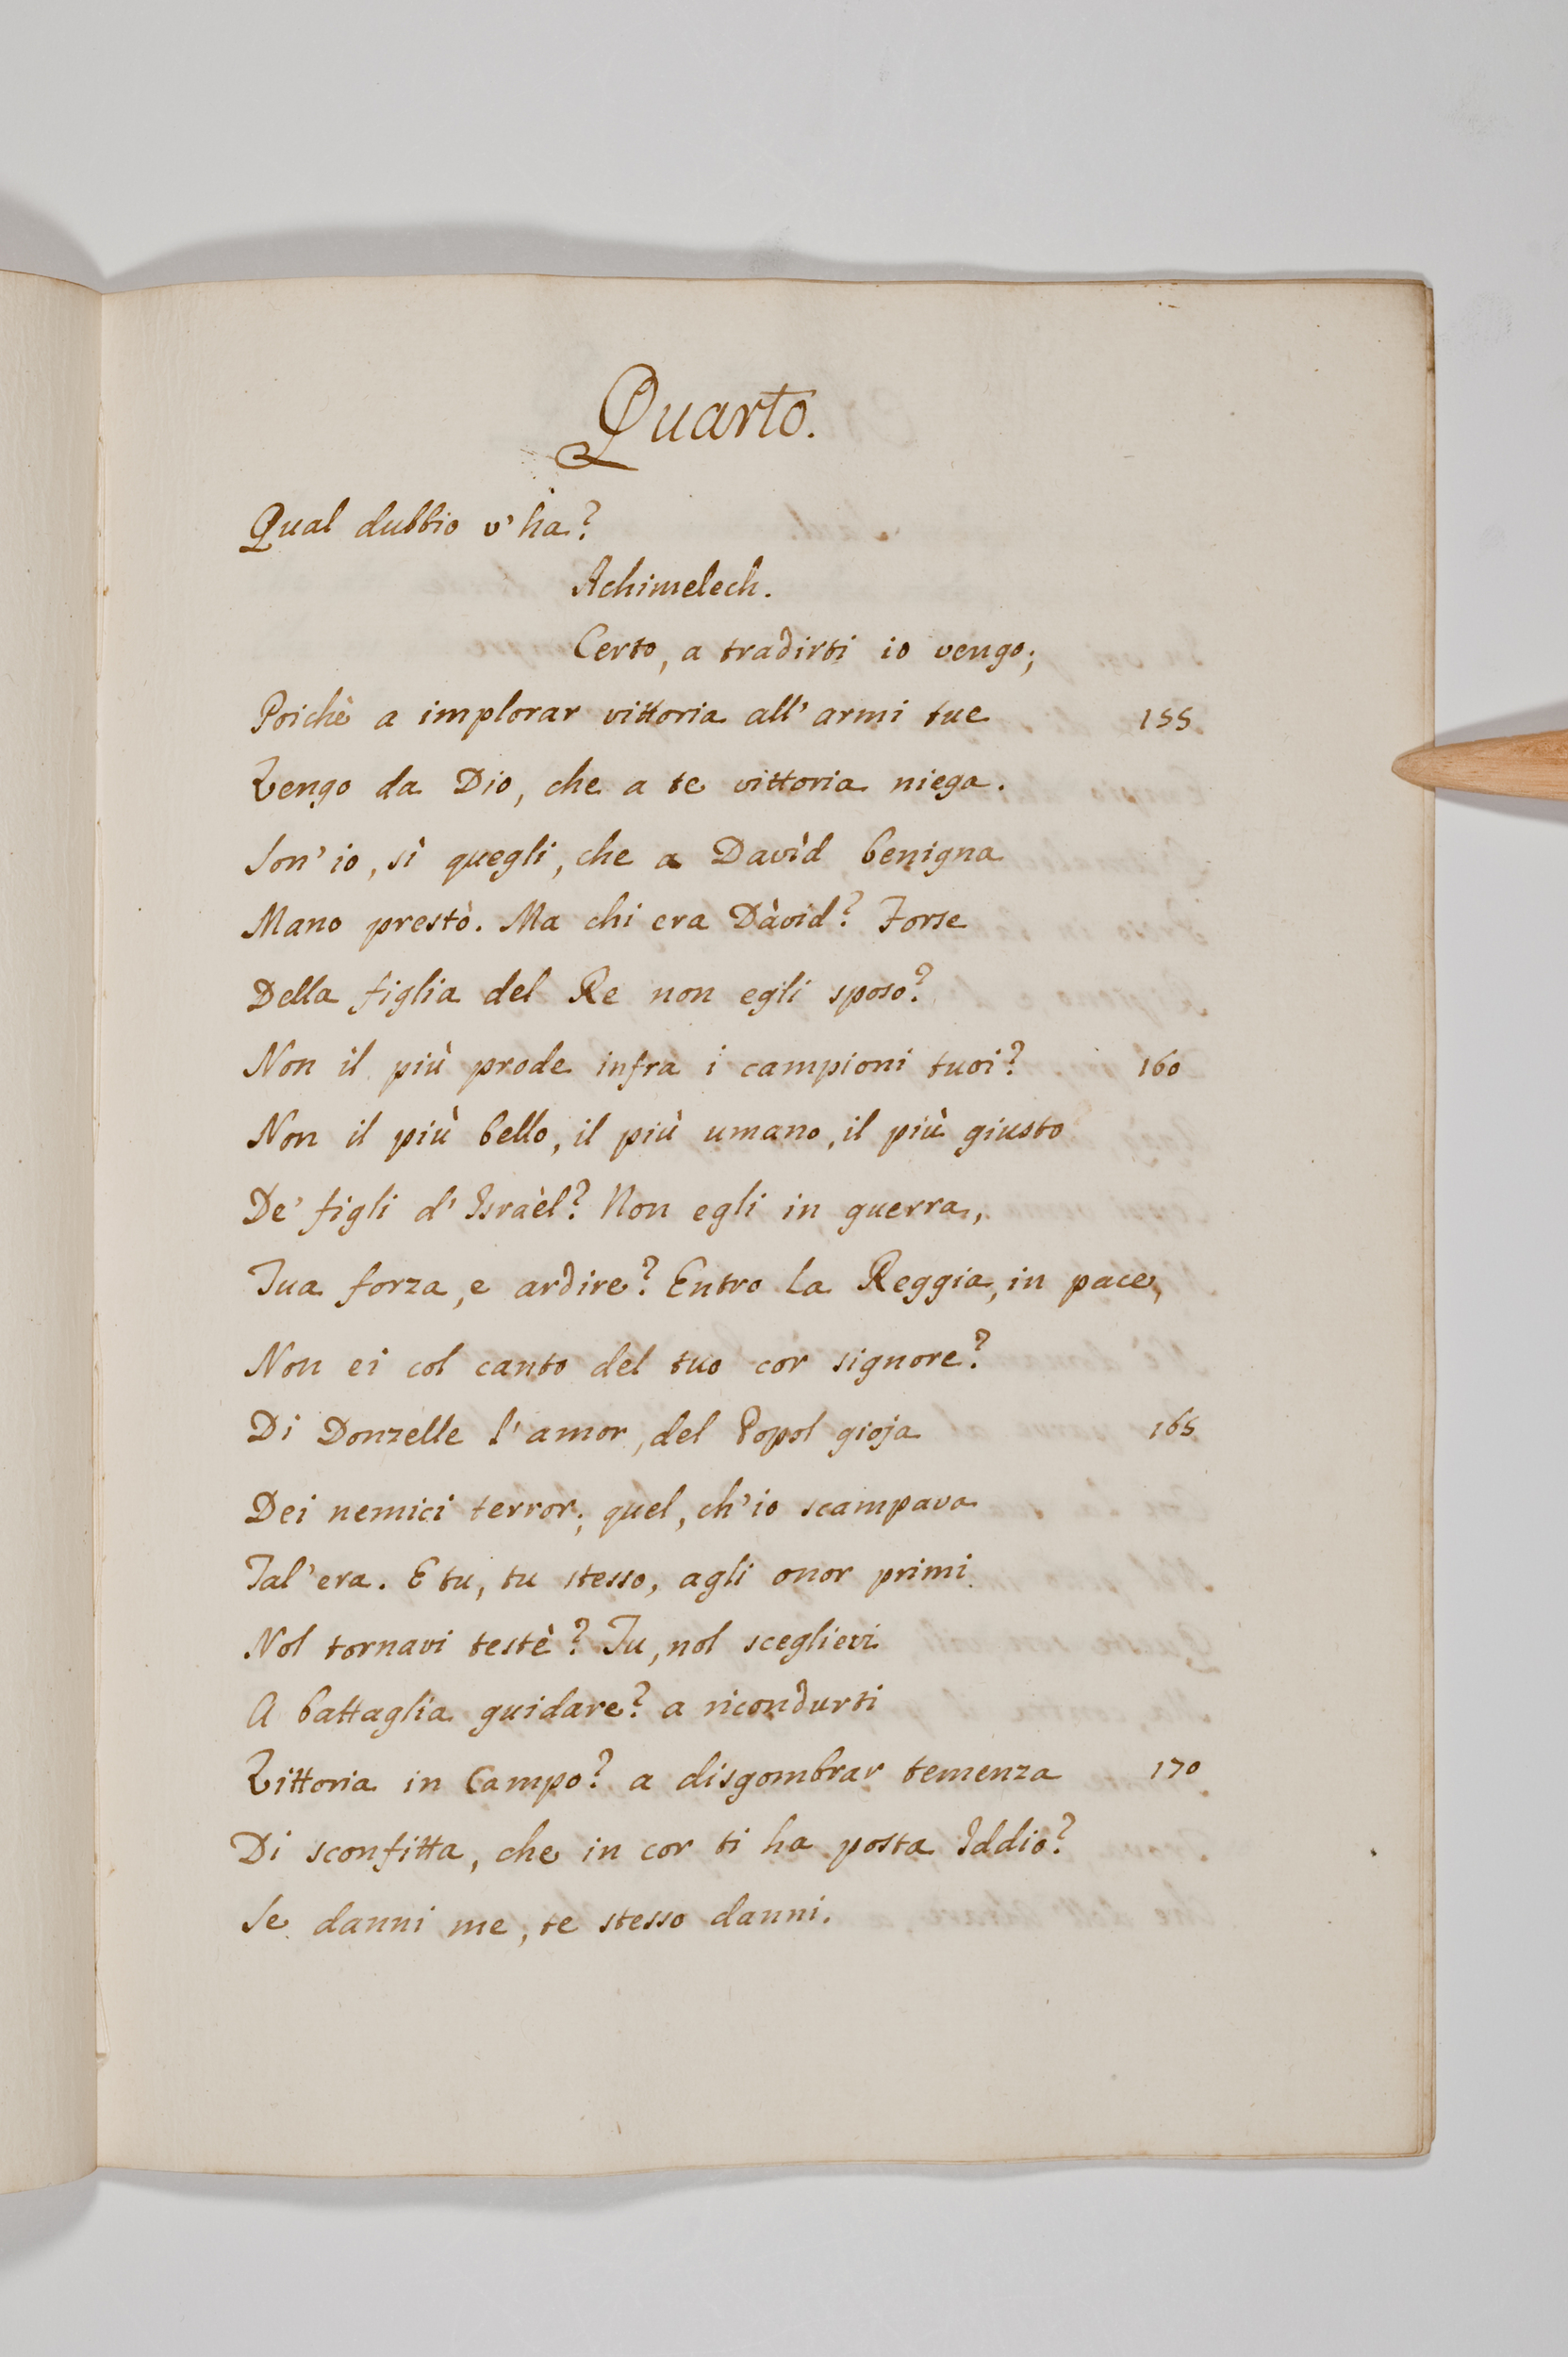 Quarto.
Qual dubbio v'ha?
Achimelech.
Certo, a tradirti io vengo;
Poichè a implorar vittoria all'armi tue 155
Vengo da Dio, che a te vittoria niega.
Son'io, sì quegli, che a Davìd benigna
Mano prestò. Ma chi era Dàvid? Forse
Della figlia del Re non egli sposo?
Non il più prode infra i campioni tuoi? 160
Non il più bello, il più umano, il più giusto
De' figli d'Israèl? Non egli in guerra,
Tua forza, e ardire? Entro la Reggia, in pace,
Non ei col canto del tuo cor signore?
Di Donzelle l'amor, del Popol gioja 165
Dei nemici terror; quel, ch'io scampava
Tal'era. E tu, tu stesso, agli onor primi
Nol tornavi testè? Tu, nol sceglievi
A battaglia guidare? a ricondurti
Vittoria in Campo? a disgombrar temenza 170
Di sconfitta, che in cor ti ha posta Iddio?
Se danni me, te stesso danni.